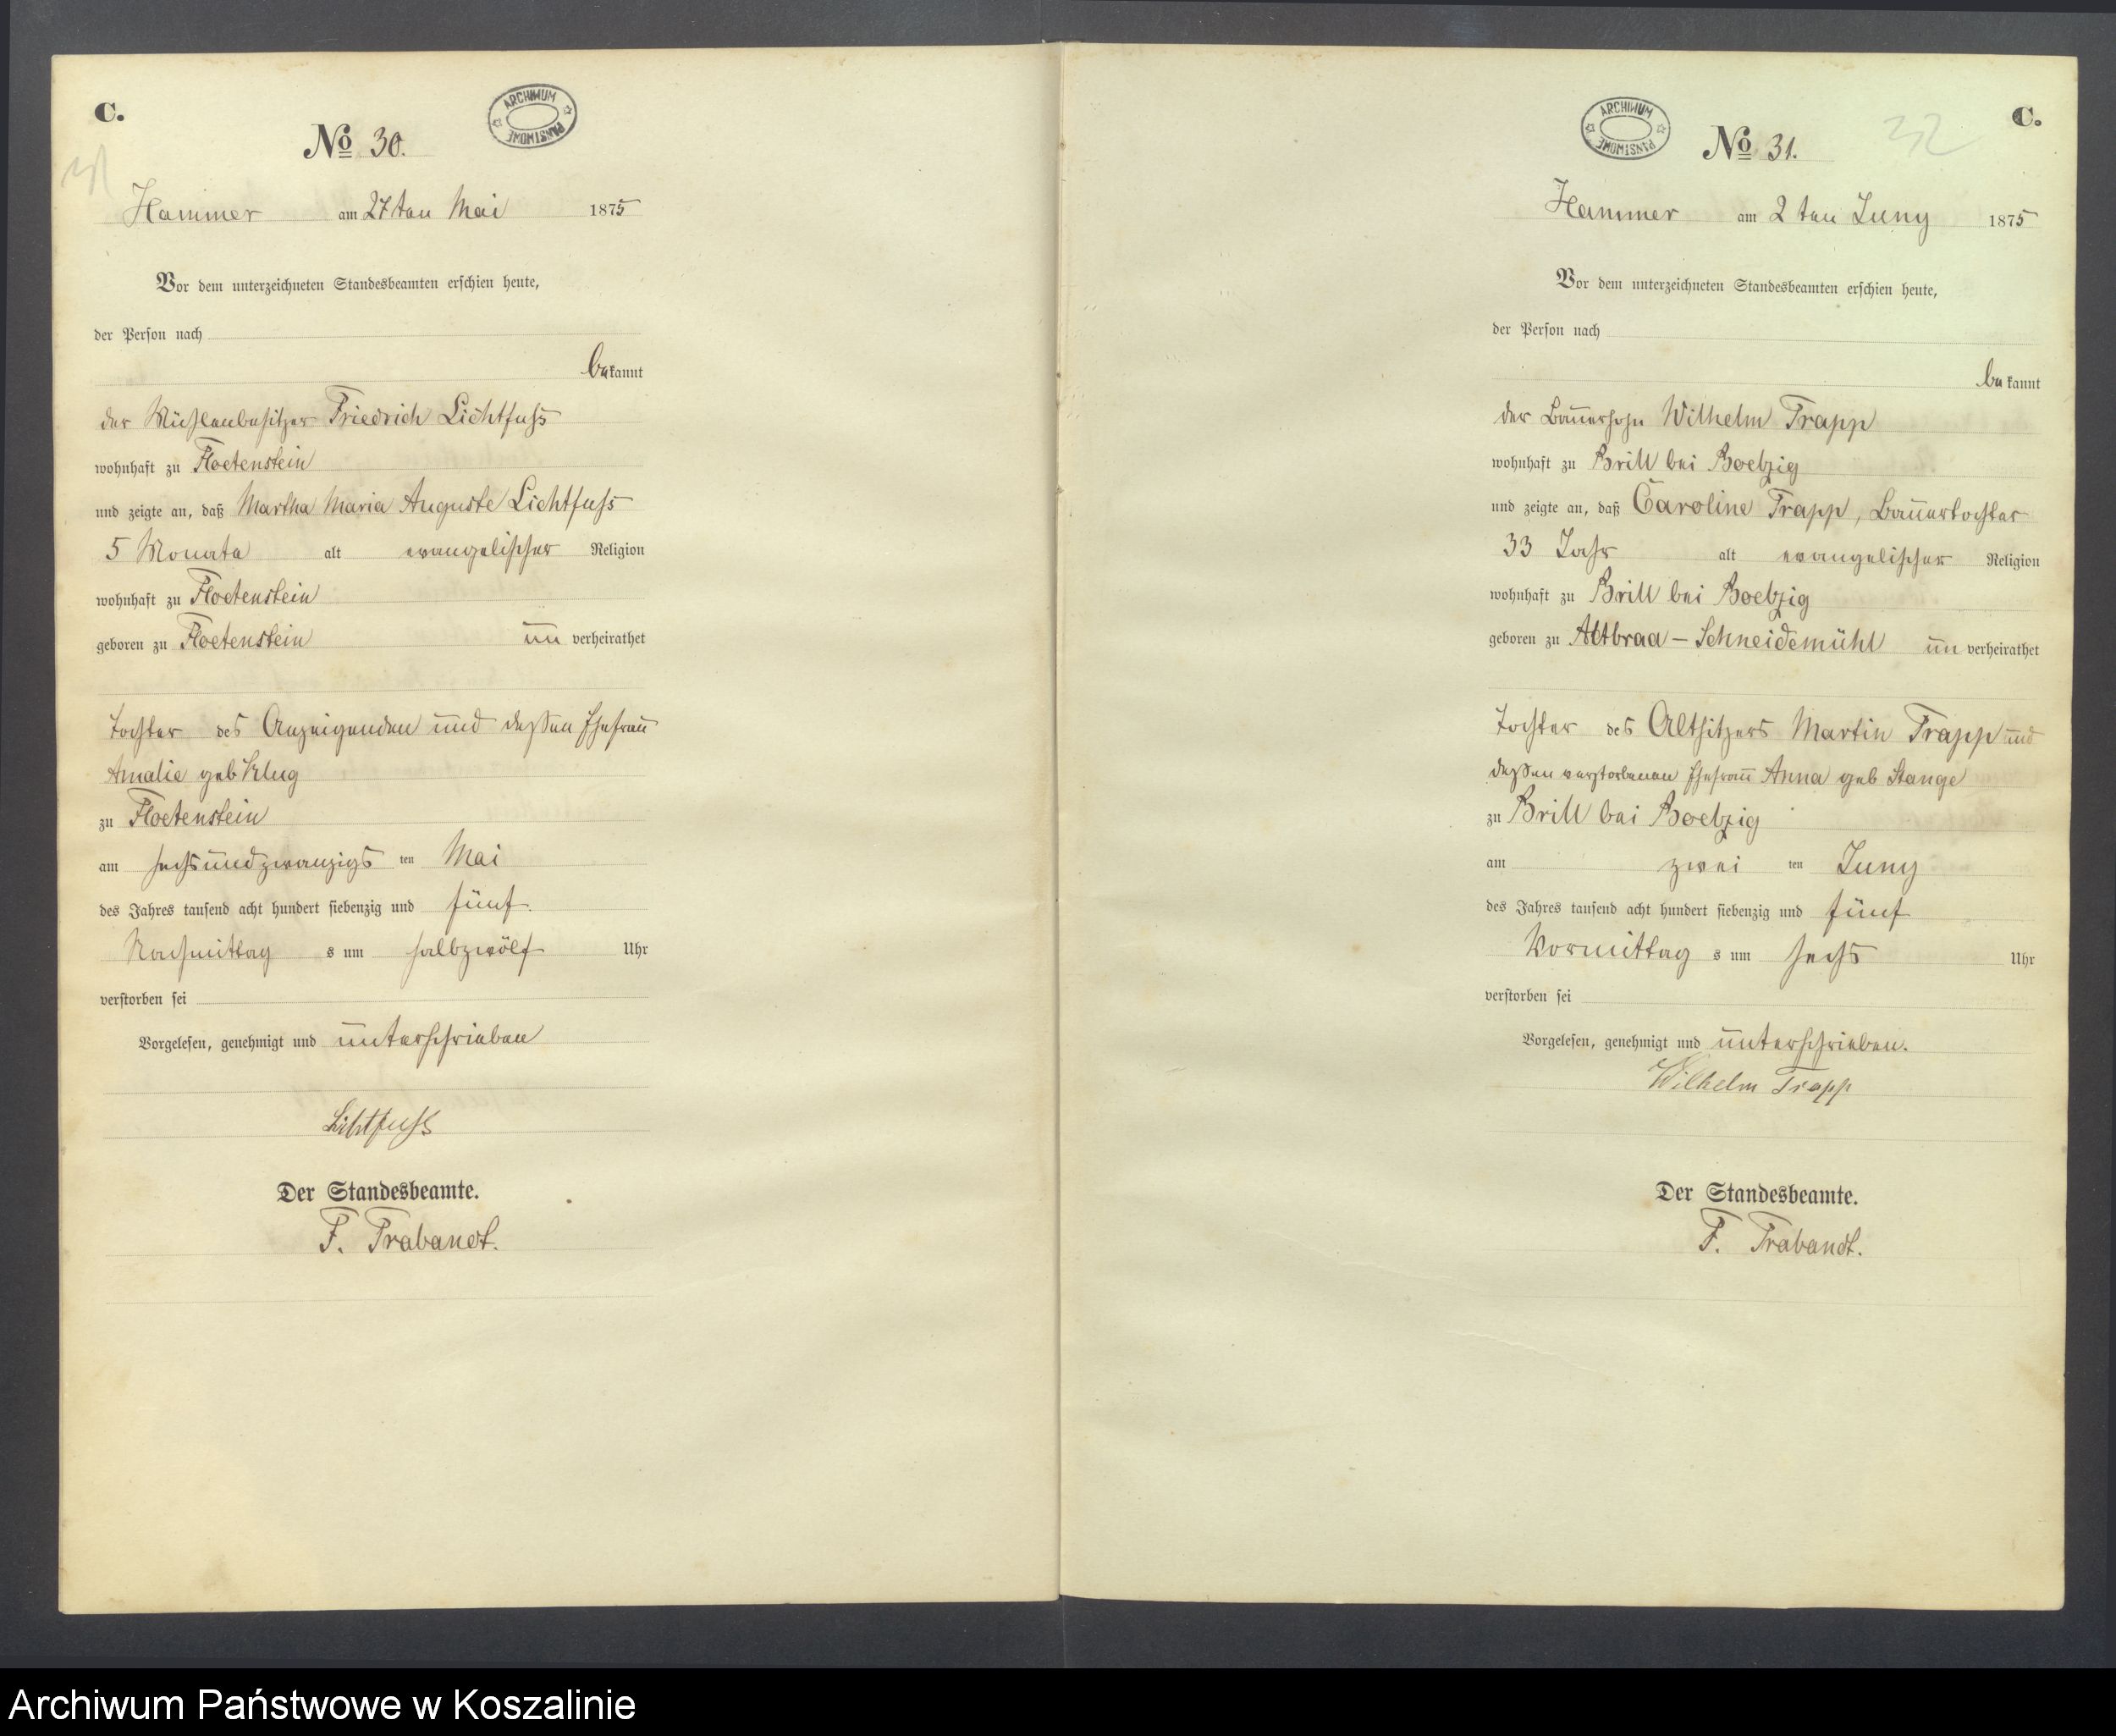 C.
ARCHIWUM PAŃSTWOWE
No 30.
31
Hammer am 27ten Mai 1875
Vor dem unterzeichneten Standesbeamten erschien heute,
der Person nach
bekannt
der Mühlenbesitzer Friedrich Lichtfuss
wohnhaft zu Floetenstein
und zeigte an, daß Martha Maria Auguste Lichtfuss
5 Monate alt evangelischer Religion
wohnhaft zu Floetenstein
geboren zu Floetenstein un verheirathet
Tochter des Anzeigenden und dessen Ehefrau
Amalie geb Klug
zu Floetenstein
am sechsundzwanzigs ten Mai
des Jahres tausend acht hundert siebenzig und fünf.
Nachmittag s um halbzwölf Uhr
verstorben sei
Vorgelesen, genehmigt und unterschrieben
Lichtfuss
Der Standesbeamte.
F. Trabandt.
C.
ARCHIWUM PAŃSTWOWE
No 31.
32
Hammer am 2 ten Juny 1875
Vor dem unterzeichneten Standesbeamten erschien heute,
der Person nach
bekannt
der Bauersohn Wilhelm Trapp
wohnhaft zu Brill bei Boelzig
und zeigte an, daß Caroline Trapp, Bauertochter
33 Jahr alt evangelischer Religion
wohnhaft zu Brill bei Boelzig
geboren zu Altbraa – Schneidemühl un verheirathet
Tochter des Altsitzers Martin Trapp und
dessen verstorbenen Ehefrau Anna geb Stange
zu Brill bei Boelzig
am zwei ten Juny
des Jahres tausend acht hundert siebenzig und fünf
Vormittag s um sechs Uhr
verstorben sei
Vorgelesen, genehmigt und unterschrieben.
Wilhelm Trapp
Der Standesbeamte.
F. Trabandt.
Archiwum Państwowe w Koszalinie